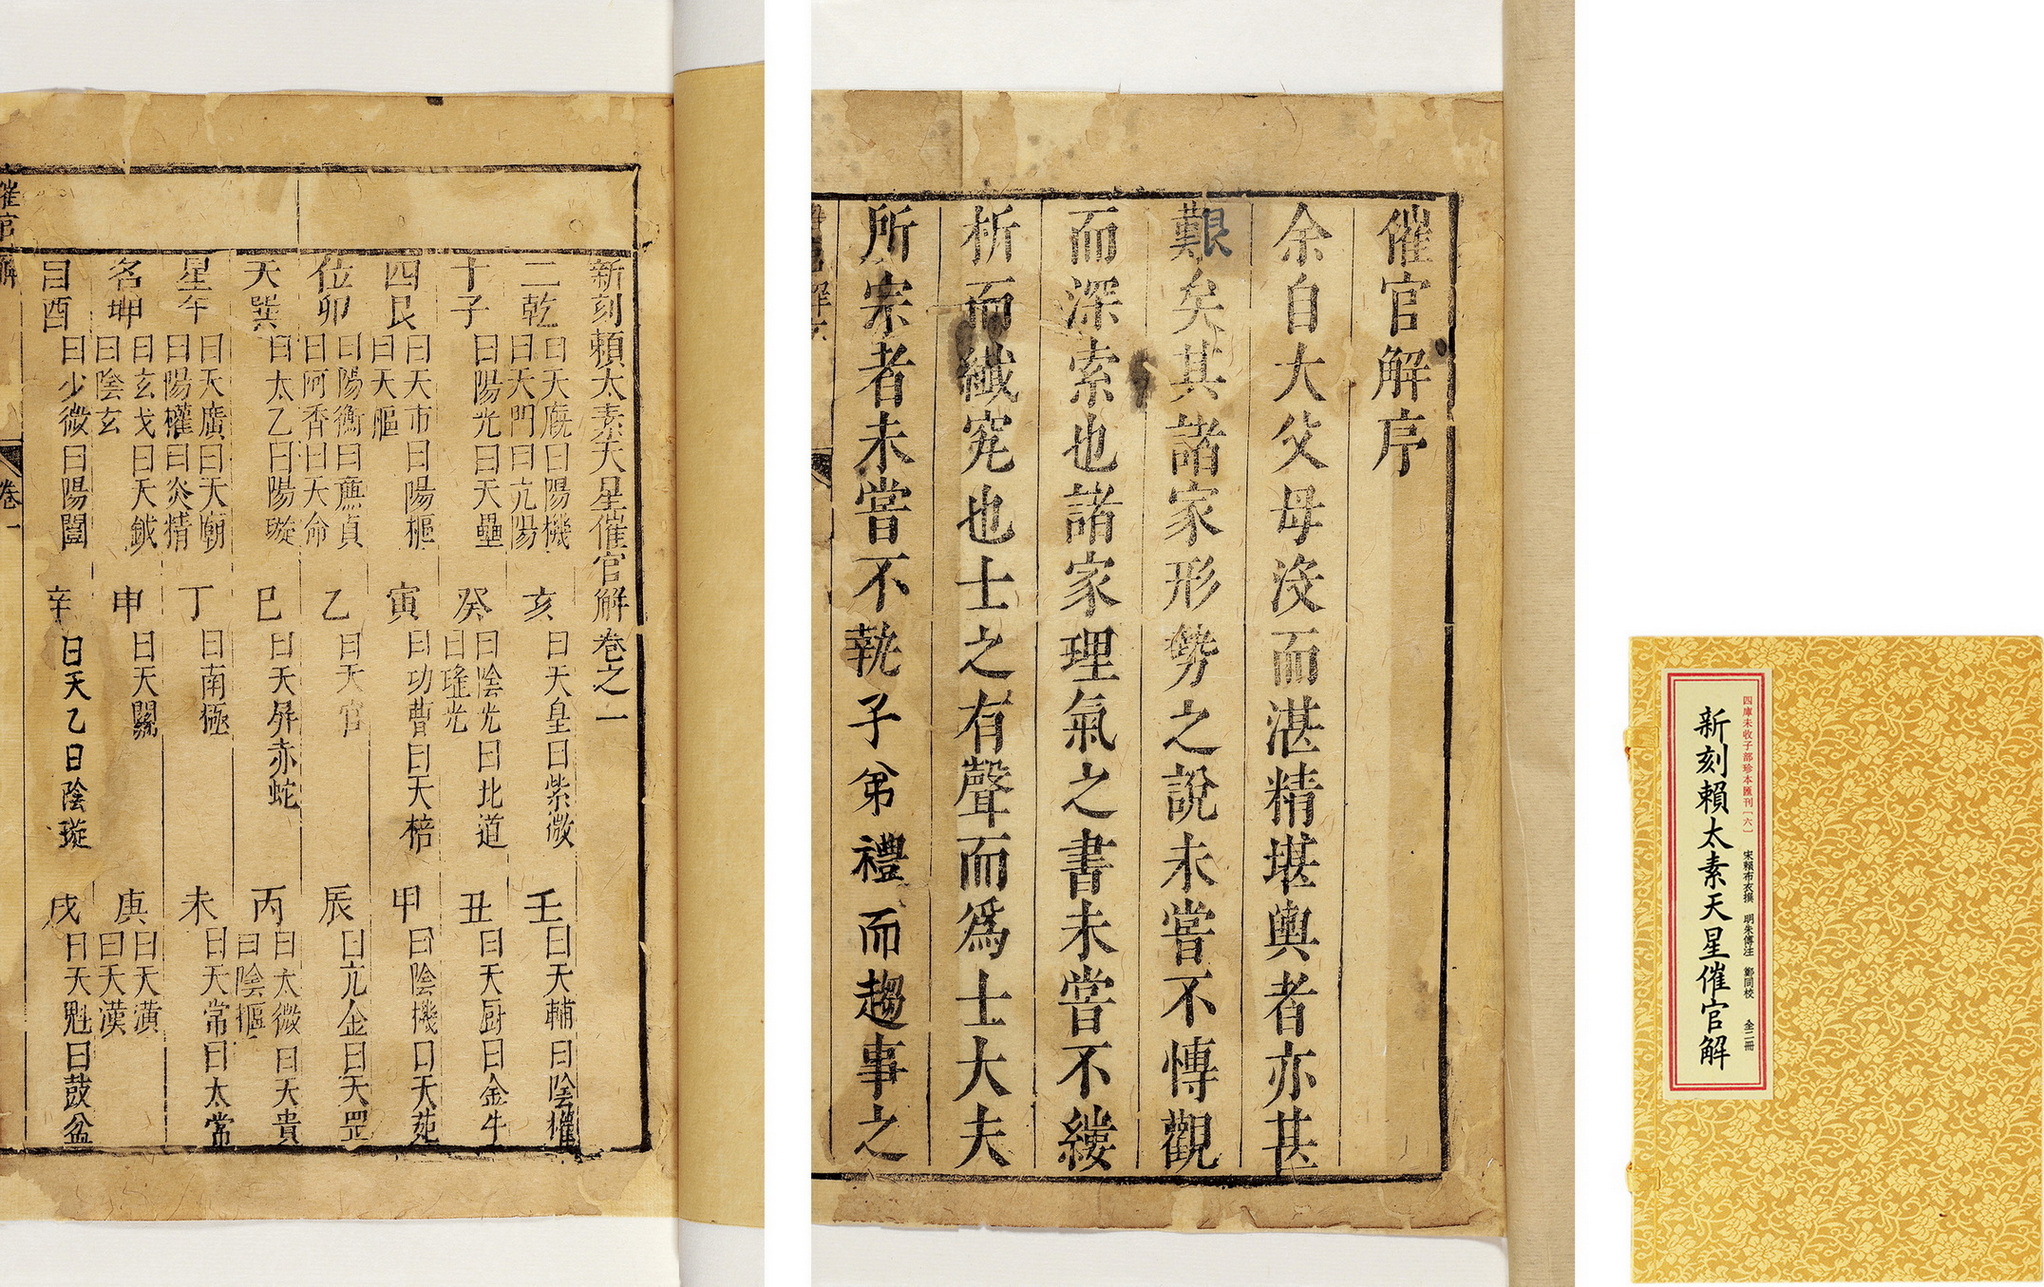 新刻賴太素天星催官解卷之一
二乾曰天廐曰陽機曰天門曰亢陽亥曰天皇曰紫微壬曰天輔曰陰權
十子曰陽光曰天壘癸曰陰光曰北道曰瑤光丑曰天厨曰金牛
四艮曰天市曰陽樞曰天樞寅曰功曹曰天棓甲曰陰機曰天苑
位卯曰陽衡曰廉貞曰阿香曰天命乙曰天官辰曰亢金曰天罡
天巽曰太乙曰陽璇巳曰天屏赤蛇丙曰太微曰天貴曰陰樞
星午曰天廣曰天廟曰陽權曰炎精丁曰南極未曰天常曰太常
名坤曰玄戈曰天鉞曰陰玄申曰天關庚曰天潢曰天漢
曰酉曰少微曰陽闓辛曰天乙曰陰璇戌曰天魁曰鼓盆
催官解 卷一
催官解序
余自大父母沒而湛精堪輿者亦甚
艱矣其諸家形勢之說未嘗不慱觀
而深索也諸家理氣之書未嘗不縷
析而纎究也士之有聲而爲士大夫
所宗者未嘗不執子弟禮而趨事之
四庫未收子部珍本匯刊〔六〕 宋賴布衣撰 明朱傳注 鄭同校 全二冊
新刻賴太素天星催官解